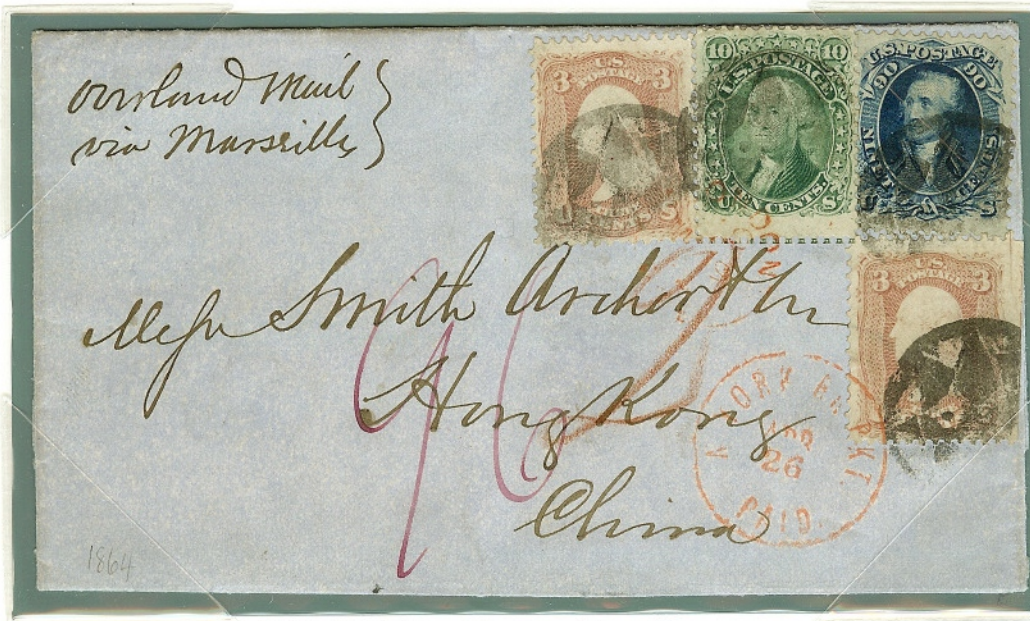 Overland Mail
via Marseille
3 U.S. POSTAGE 3
10 10
U.S. POSTAGE
TEN CENTS.
U S
U.S. POSTAGE
90 90
NINETY CENTS
U S
3 U.S. POSTAGE 3
Messr Smith Archer & Co
Hong Kong
China
96
YORK BR. PKT.
APR
26
PAID
1864